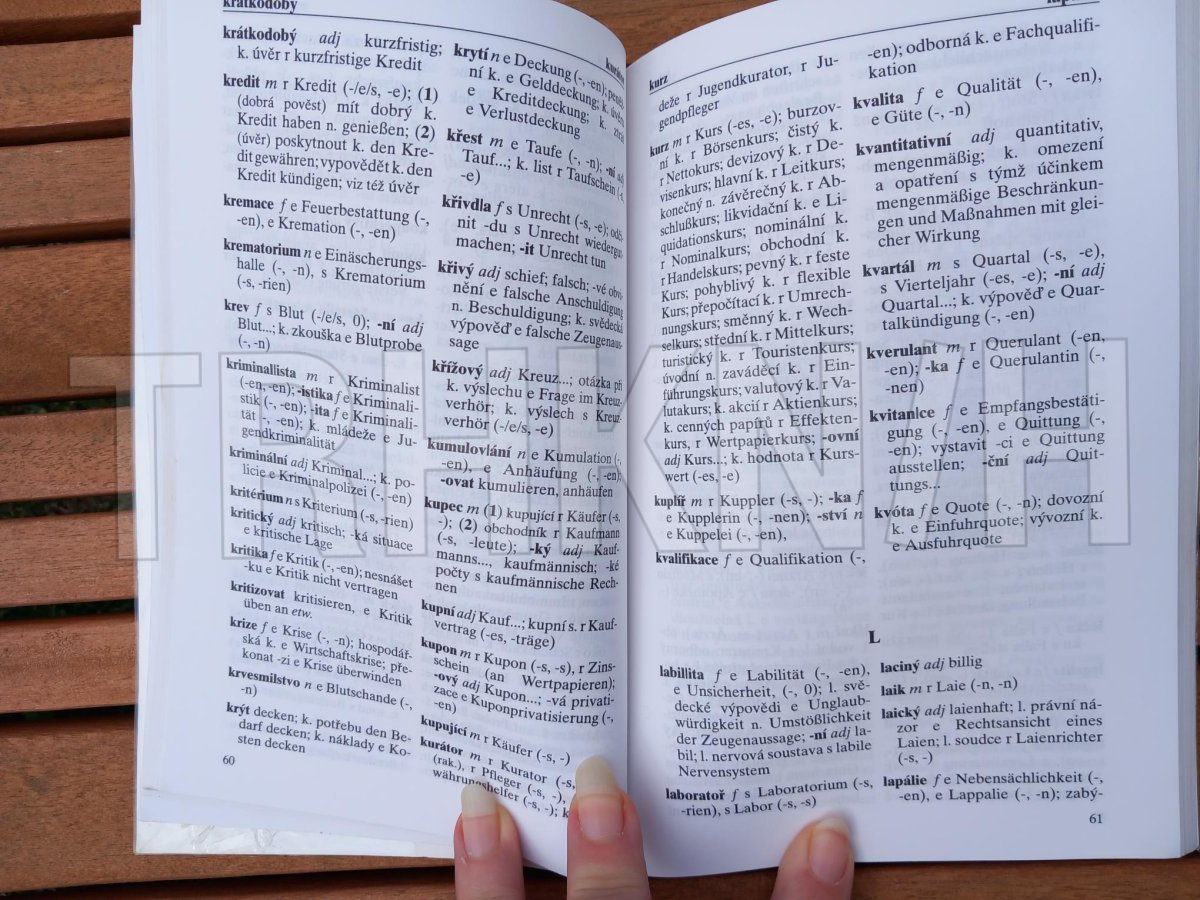 krátkodobý
krátkodobý adj kurzfristig;
k. úvěr r kurzfristige Kredit
kredit m r Kredit (-/e/s, -e); (1)
(dobrá pověst) mít dobrý k.
Kredit haben n. genießen; (2)
(úvěr) poskytnout k. den Kre-
dit gewähren; vypovědět k. den
Kredit kündigen; viz též úvěr
kremace f e Feuerbestattung (-,
-en), e Kremation (-, -en)
krematorium n e Einäscherungs-
halle (-, -n), s Krematorium
(-s, -rien)
krev f s Blut (-/e/s, 0); -ní adj
Blut...; k. zkouška e Blutprobe
(-, -n)
kriminallista m r Kriminalist
(-en, -en); -istika f e Kriminali-
stik (-, -en); -ita f e Kriminali-
tät -, -en); k. mládeže e Ju-
gendkriminalität
kriminální adj Kriminal...; k. po-
licie e Kriminalpolizei (-, -en)
kritérium n s Kriterium (-s, -rien)
kritický adj kritisch; -ká situace
e kritische Lage
kritika f e Kritik (-, -en); nesnášet
-ku e Kritik nicht vertragen
kritizovat kritisieren, e Kritik
üben an etw.
krize f e Krise (-, -n); hospodář-
ská k. e Wirtschaftskrise; pře-
konat -zi e Krise überwinden
krvesmilstvo n e Blutschande (-,
-n)
krýt decken; k. potřebu den Be-
darf decken; k. náklady e Ko-
sten decken
60
krytí n e Deckung (-, -en);
ní k. e Gelddeckung; k. úvěru
e Kreditdeckung; k. ztrát
e Verlustdeckung
křest m e Taufe (-, -n); -ní adj
Tauf...; k. list r Taufschein (-s,
-e)
křivdla f s Unrecht (-s, -e); odči-
nit -du s Unrecht wiedergut-
machen; -it Unrecht tun
křivý adj schief; falsch; -vé obvi-
nění e falsche Anschuldigung
n. Beschuldigung; k. svědecká
výpověď e falsche Zeugenaus-
sage
křížový adj Kreuz...; otázka při
k. výslechu e Frage im Kreuz-
verhör; k. výslech s Kreuz-
verhör (-/e/s, -e)
kumulovlání n e Kumulation (-,
-en), e Anhäufung (-, -en);
-ovat kumulieren, anhäufen
kupec m (1) kupující r Käufer (-s,
-); (2) obchodník r Kaufmann
(-s, -leute); -ký adj Kauf-
manns..., kaufmännisch; -ké
počty s kaufmännische Rech-
nen
kupní adj Kauf...; kupní s. r Kauf-
vertrag (-es, -träge)
kupon m r Kupon (-s, -s), r Zins-
schein (an Wertpapieren);
-ový adj Kupon...; -vá privati-
zace e Kuponprivatisierung (-,
-en)
kupující m r Käufer (-s, -)
kurátor m r Kurator (-s,
(rak.), r Pfleger (-s, -),
währungshelfer (-s, -); k.
kurz
deže r Jugendkurator, r Ju-
gendpfleger
kurz m r Kurs (-es, -e); burzov-
ní k. r Börsenkurs; čistý k.
r Nettokurs; devizový k. r De-
visenkurs; hlavní k. r Leitkurs;
konečný n. závěrečný k. r Ab-
schlußkurs; likvidační k. e Li-
quidationskurs; nominální k.
r Nominalkurs; obchodní k.
r Handelskurs; pevný k. r feste
Kurs; pohyblivý k. r flexible
Kurs; přepočítací k. r Umrech-
nungskurs; směnný k. r Wech-
selkurs; střední k. r Mittelkurs;
turistický k. r Touristenkurs;
úvodní n. zaváděcí k. r Ein-
führungskurs; valutový k. r Va-
lutakurs; k. akcií r Aktienkurs;
k. cenných papírů r Effekten-
kurs, r Wertpapierkurs; -ovní
adj Kurs...; k. hodnota r Kurs-
wert (-es, -e)
kuplíř m r Kuppler (-s, -); -ka f
e Kupplerin (-, -nen); -ství n
e Kuppelei (-, -en),
kvalifikace f e Qualifikation (-,
-en); odborná k. e Fachqualifi-
kation
kvalita f e Qualität (-, -en),
e Güte (-, -n)
kvantitativní adj quantitativ,
mengenmäßig; k. omezení
a opatření s týmž účinkem
mengenmäßige Beschränkun-
gen und Maßnahmen mit glei-
cher Wirkung
kvartál m s Quartal (-s, -e),
s Vierteljahr (-es, -e); -ní adj
Quartal...; k. výpověď e Quar-
talkündigung (-, -en)
kverulant m r Querulant (-en,
-en); -ka f e Querulantin (-,
-nen)
kvitanlce f e Empfangsbestäti-
gung (-, -en), e Quittung (-,
-en); vystavit -ci e Quittung
ausstellen; -ční adj Quit-
tungs...
kvóta f e Quote (-, -n); dovozní
k. e Einfuhrquote; vývozní k.
e Ausfuhrquote
L
labillita f e Labilität (-, -en),
e Unsicherheit, (-, 0); l. svě-
decké výpovědi e Unglaub-
würdigkeit n. Umstößlichkeit
der Zeugenaussage; -ní adj la-
bil; l. nervová soustava s labile
Nervensystem
laboratoř f s Laboratorium (-s,
-rien), s Labor (-s, -s)
laciný adj billig
laik m r Laie (-n, -n)
laický adj laienhaft; l. právní ná-
zor e Rechtsansicht eines
Laien; l. soudce r Laienrichter
(-s, -)
lapálie f e Nebensächlichkeit (-,
-en), e Lappalie (-, -n); zabý-
61
TRHKNIH